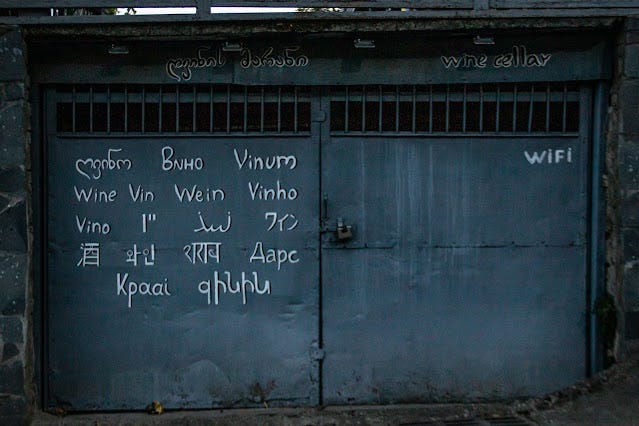 ღვინის მარანი wine cellar
ღვინო Вино Vinum
WiFi
Wine Vin Wein Vinho
Vino نبيذ ワイン
酒 와인 शराब Дарс
Κρααi գինին